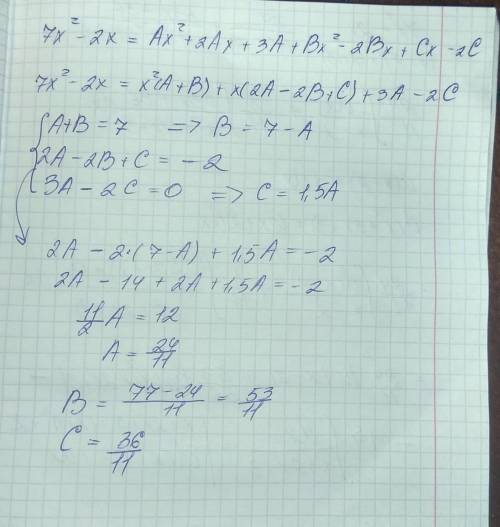 7x² - 2x = Ax² + 2Ax + 3A + Bx² - 2Bx + Cx - 2C
7x² - 2x = x²(A+B) + x(2A - 2B + C) + 3A - 2C
{A+B = 7 => B = 7 - A
2A - 2B + C = -2
3A - 2C = 0 => C = 1,5A
2A - 2·(7-A) + 1,5A = -2
2A - 14 + 2A + 1,5A = -2
11/2 A = 12
A = 24/11
B = 77-24/11 = 53/11
C = 36/11